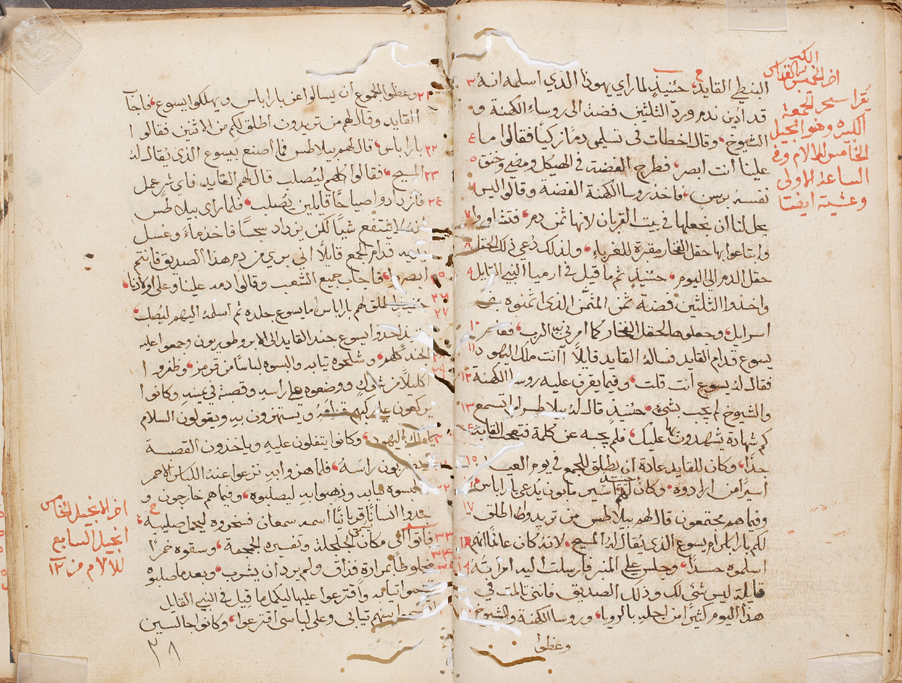 البنطي القايد حنئيذٍ لما راي يهوذا الذي اسلمه انه ٣
قد ادين ندم ورد الثلثين فضة الى روساء الكهنة و
الشيوخ وقال اخطات في تسليمي دمًا زكيًا فقالوا ما ٤
علينا أنت ابصر فطرح الفضة في الهيكل ومضى وخنق ٥
نفسه فاخذ روسا الكهنة الفضه وقالوا ليس
يحل لنا ان نجعلها في بيت القربان لانها ثمن دم فتشاوروا ٧
وابتاعوا بها حقل الفخار مقبرة للغرباء ولذلك دعي ذلك الحقل ٨
حقل الدم الى اليوم حنئيذٍ تم ما قيل في ارميا النبي القايل ٩
واخذوا الثلثين فضة ثمن المثمن الذي اثمنوه بني
اسراييل وجعلوها لحقل الفخار كما امرني الرب فقام ١٠
يسوع قدام القايد فساله القايد قايلاً أأنت ملك اليهود ١١
فقال له يسوع أنت قلت وفيما يقرف عليه روسا الكهنة ١٢
والشيوخ لم يجب بشيء حنئيذٍ قال له بيلاطس اما تسمع ١٣
كم شهادة يشهدون بها عليك فلم يجبه عن كلمة فتعجب القايد
جدًا وكان للقايد عادة ان يطلق للجمع في يوم العيد ١٥
اسيرًا من ارادوه وكان لهم اسير مأثور يدعى باراباس
وفيما هم مجتمعون قال لهم بيلاطس من تريدوا اطلق ١٧
لكم باراباس ام يسوع الذي يقال له المسيح لانه كان عالمًا انهم ١٨
اسلموه حسدًا وجلس على المنبر فارسلت اليه امراته ١٩
قايلة ليس شي لك وذلك الصديق فانني تالمت في
هذا اليوم كثيرًا من اجله بالرويا وروسا الكهنة والشيوخ
وعظوا
يقرا سحر الجمعة
الكبيره وهو انجيل
الخامس للالام وفي
الساعة الاولى
وعشية ايضًا
وعظوا الجموع أن يسالوا عن باراباس ويهلكوا يسوع فاجا
القايد وقال لهم من تريدون اطلق لكم من الاثنين فقالوا
باراباس قال لهم بيلاطس فما اصنع بيسوع الذي يقال له ٢٢
المسيح فقالوا كلهم ليصلب قال لهم القايد فاي شر عمل ٢٣
فازدادوا صياحًا قايلين يصلب فلما راى بيلاطس ٢٤
انه لا ينتفع شيًا لكن يزداد سجسًا فاخذ ماء وغسل
يديه قدام الجمع قايلاً اني بري من دم هذا الصديق فانتم
ابصروا فاجاب جميع الشعب وقالوا دمه علينا وعلى اولادنا ٢٥
حينيذٍ اطلق لهم باراباس اما يسوع جلده ثم اسلمه اليهم ليصلب ٢٦
اخذوا يسوع جند القايد الى الابروطوريون وجمعوا عليه ٢٧
الجند كلهم وشلحوه ثيابه والبسوه لباسًا من قرمز وظفروا
اكليلاً من شوك ووضعوه على راسه وقصبة في يمينه وكانوا
يركعون على ركبهم قدامه ويستهزون به ويقولون السلام
يا ملك اليهود وكانوا يتفلون عليه وياخذون القصبة
ويضربون راسه فلما هزوا به نزعوا عنه اللباس الاحمر
والبسوه ثيابه وذهبوا به ليصلبوه وفيما هم خارجون
وجدوا انسانًا قريانيًا اسمه سمعان فسخروه ليحمل صليبه
فاتوا الى مكان الجلجلة وتفسيره الجمجمة وسقوه خمرًا ٣٣
مخلوطًا بمرارة فذاق ولم يرد ان يشرب وبعد ما صلبوه
قسموا ثيابه واقترعوا عليها ليكمل ما قيل في النبي القايل
اقتسموا بينهم ثيابي وعلى لباسي اقترعوا وكانوا جالسين
اخر الانجيل الخامس
انجيل السابع
للالام من ١٢
٢٨